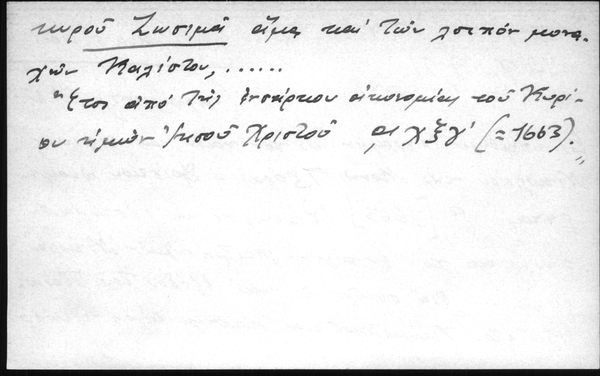 κυροῦ Ζωσιμᾶ ἅμα καὶ τῶν λοιπῶν μονα-
χῶν Καλίστου, ......
Ἔτει ἀπὸ τῆς ἐνσάρκου οἰκονομίας τοῦ Κυρί-
ου ἡμῶν Ἰησοῦ Χριστοῦ ͵αχξγ' (=1663)."